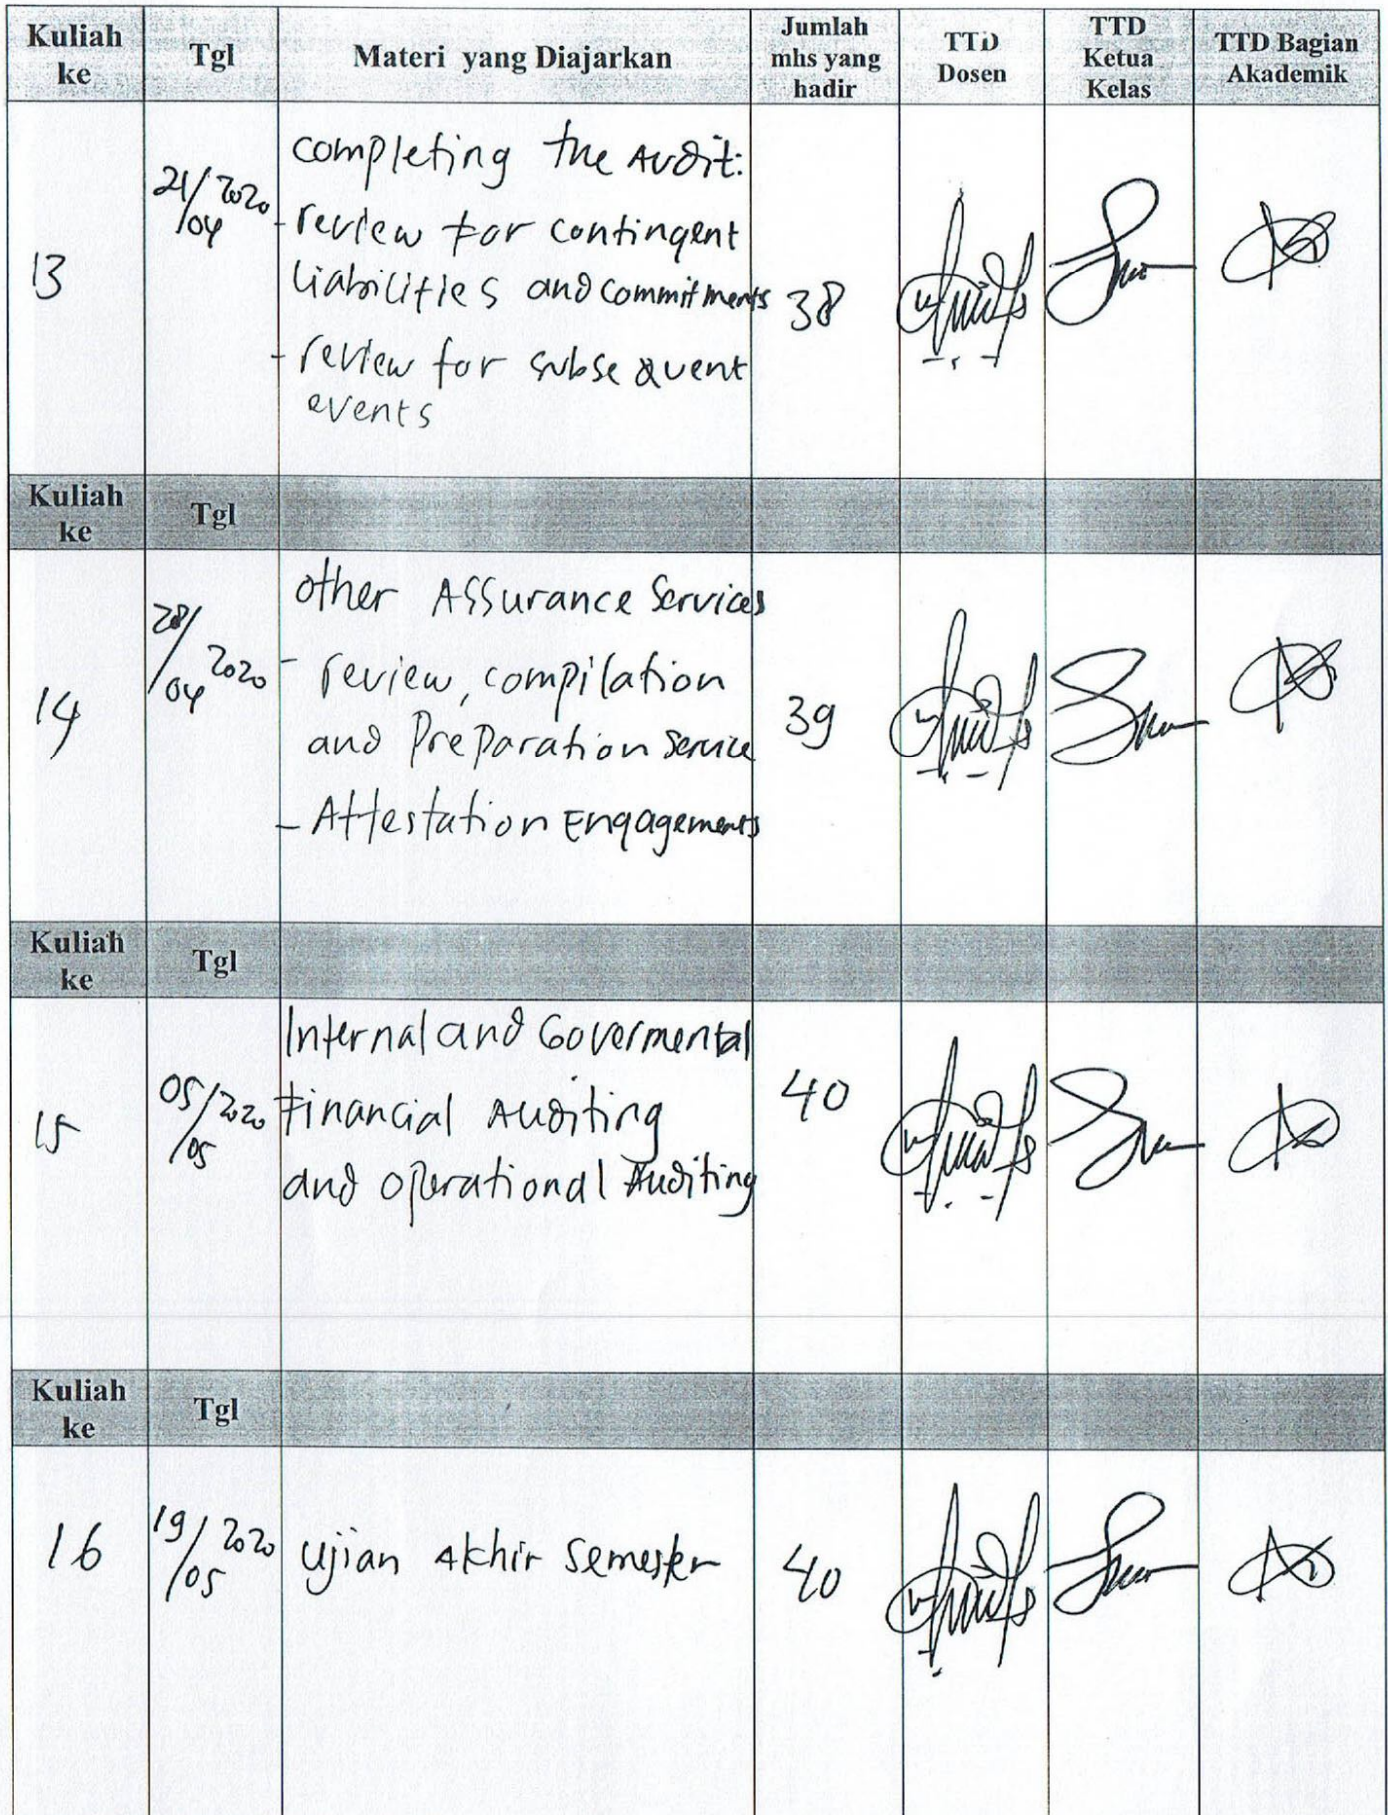 Kuliah ke Tgl Materi yang Diajarkan Jumlah mhs yang hadir TTD Dosen TTD Ketua Kelas TTD Bagian Akademik
13
21/04 2020
completing the Audit:
- review for contingent
liabilities and commitments
- review for subsequent
events
38
Kuliah ke Tgl
14
28/04 2020
other Assurance Services
- review, compilation
and Preparation service
- Attestation Engagements
39
Kuliah ke Tgl
15
05/05 2020
Internal and Govermental
Financial Auditing
and operational Auditing
40
Kuliah ke Tgl
16
19/05 2020
Ujian Akhir Semester
40